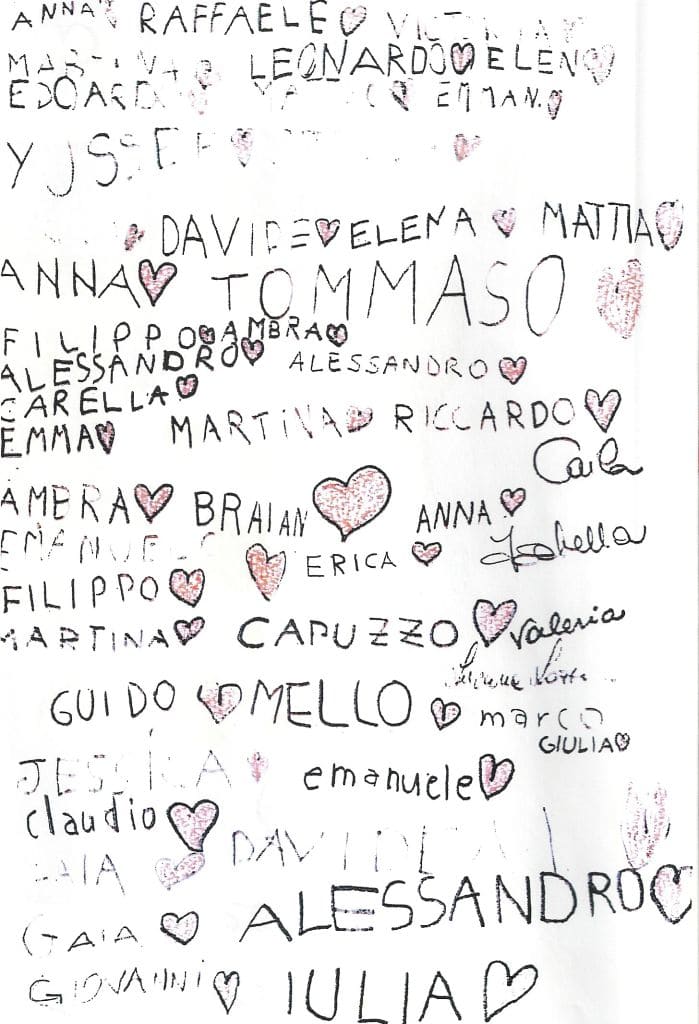 ANNA RAFFAELE
LEONARDO ELEN
EMMAN.
DAVIDE ELENA MATTIA
ANNA TOMMASO
FILIPPO AMBRA
ALESSANDRO ALESSANDRO
CARELLA
EMMA MARTINA RICCARDO
Carla
AMERA BRAIAN ANNA
EMANUELE ERICA Isabella
FILIPPO
MARTINA CAPUZZO Valeria
GUIDO MELLO marco
GIULIA
JESSICA emanuele
claudio
DAVIDE
GAIA ALESSANDRO
GIOVANNI IULIA